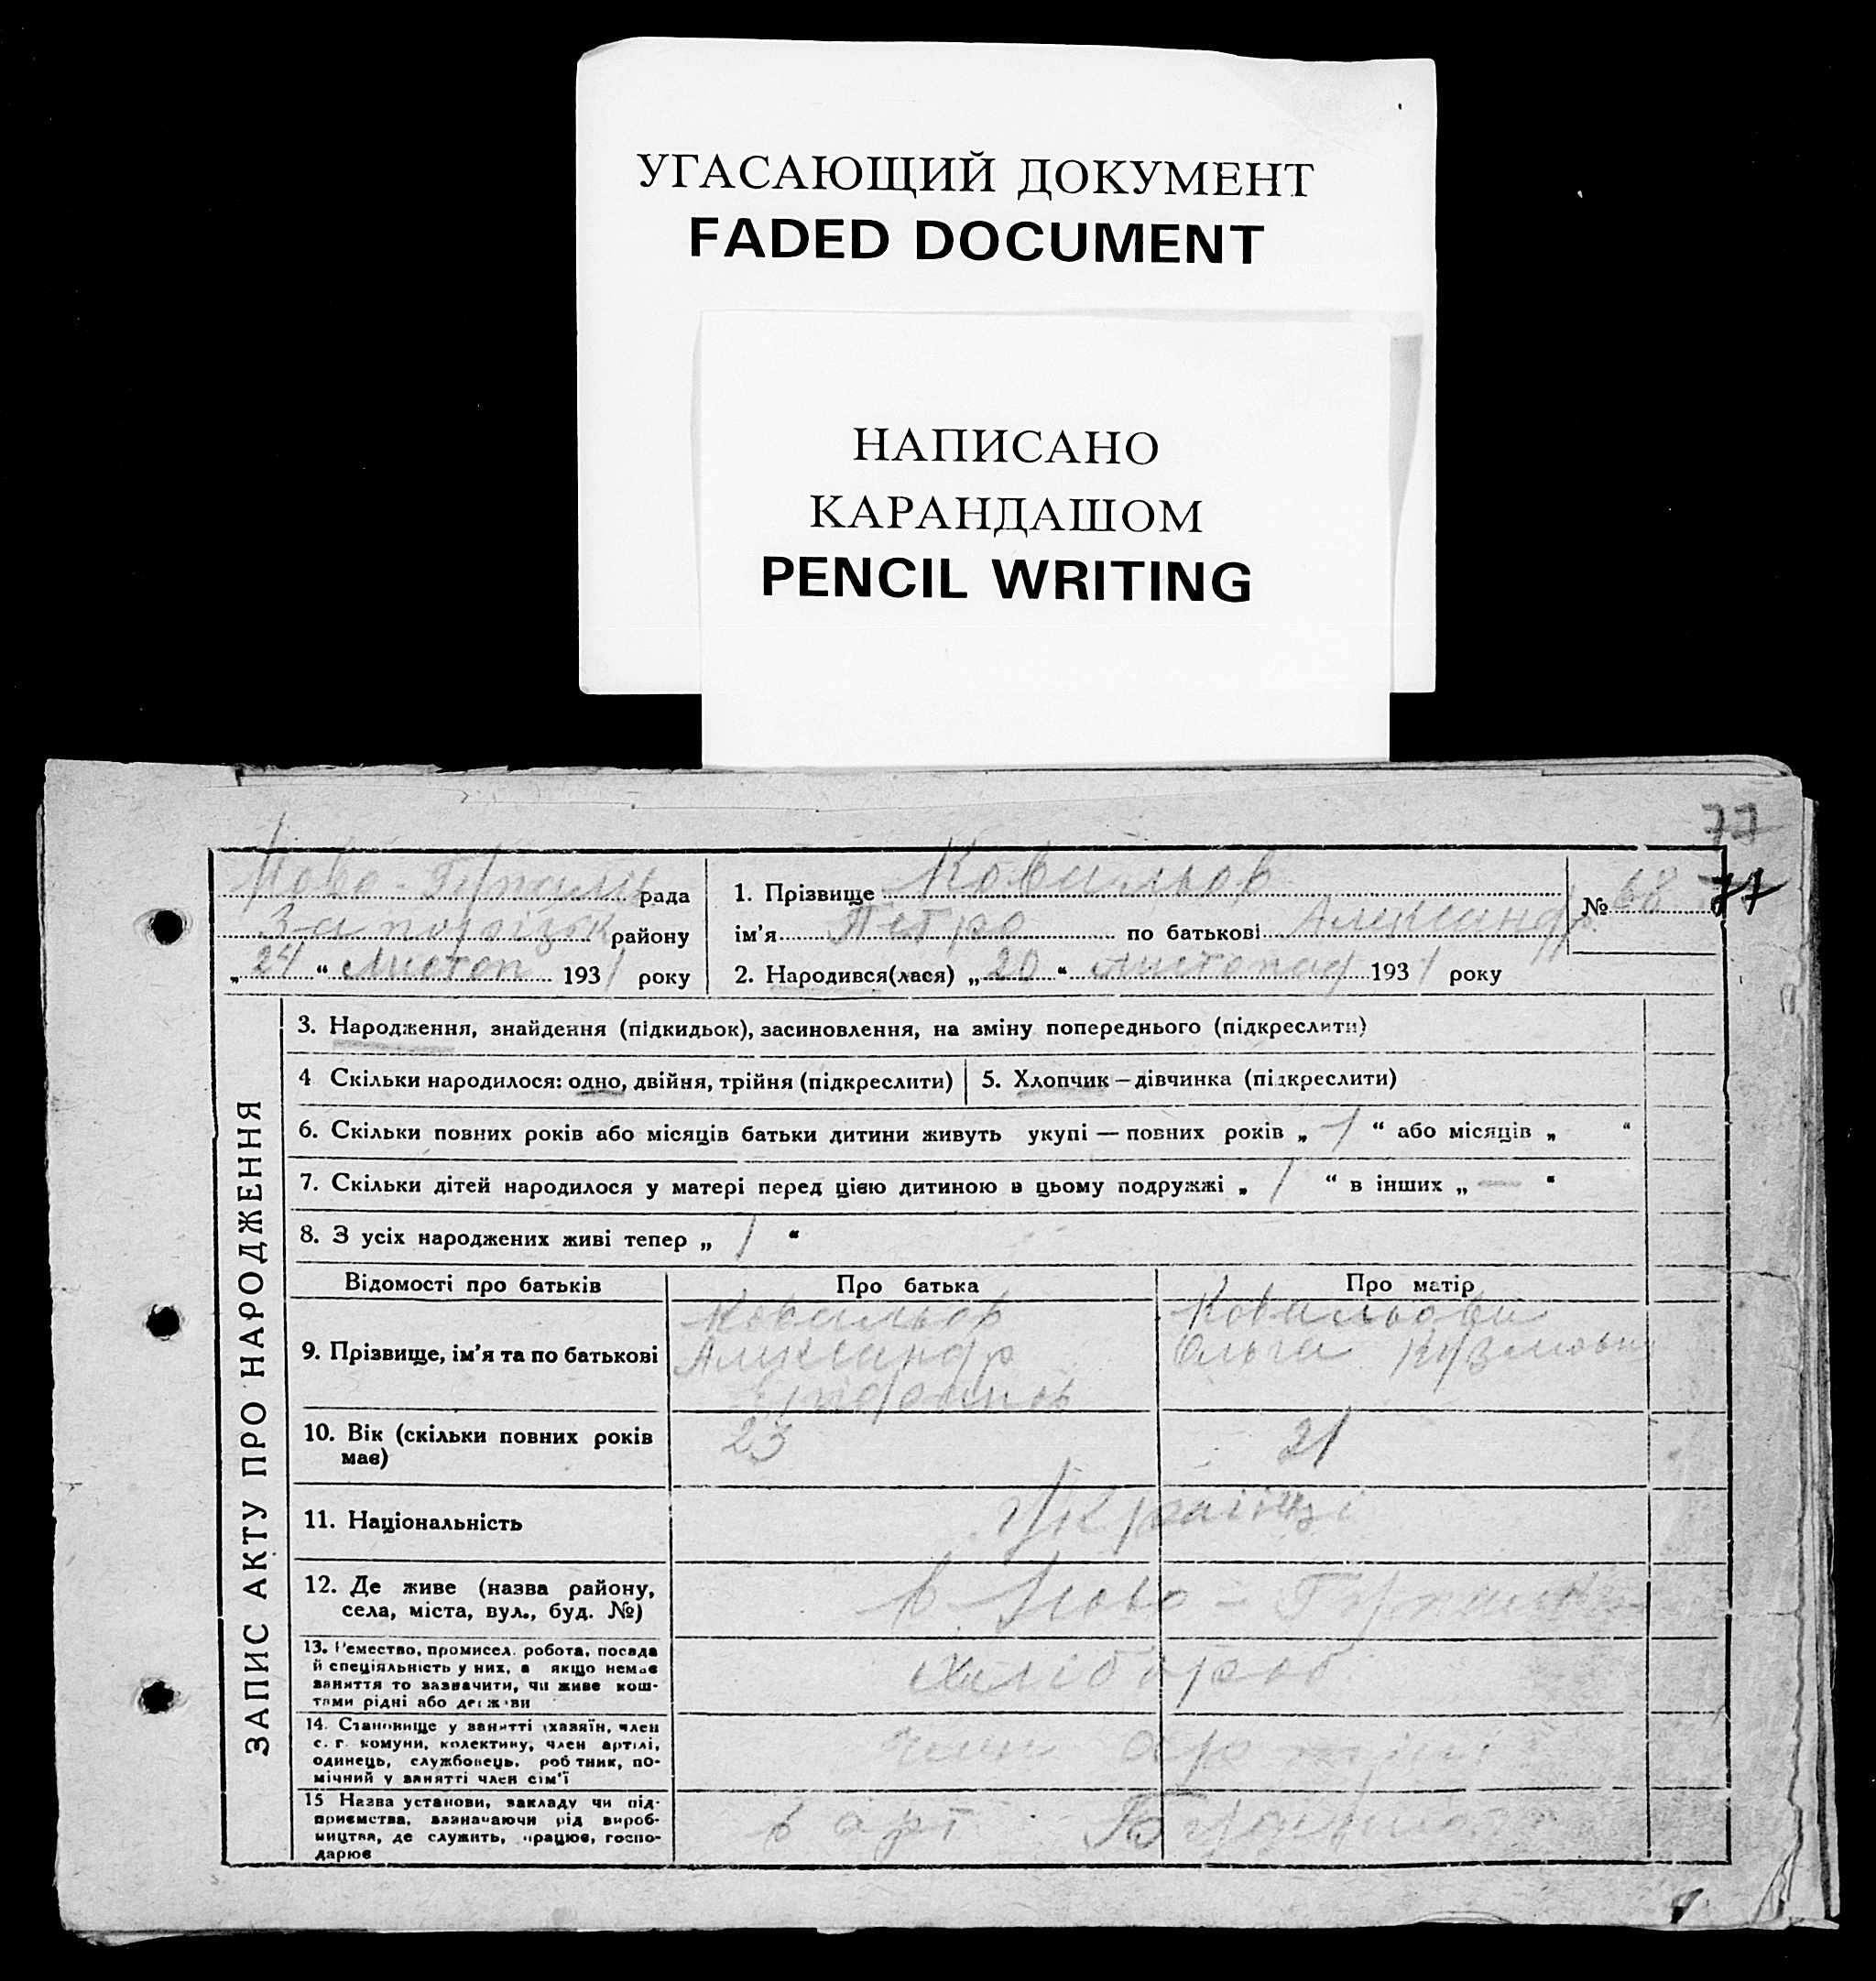 УГАСАЮЩИЙ ДОКУМЕНТ
FADED DOCUMENT
НАПИСАНО
КАРАНДАШОМ
PENCIL WRITING
77
Ново- рада
Запорізьк району
„ 24 “ Листоп 1931 року
1. Прізвище Ковальов
ім’я Петро по батькові Александр.
№ 68 77
2. Народився(лася) „ 20 “ листопад 1931 року
ЗАПИС АКТУ ПРО НАРОДЖЕННЯ
3. Народження, знайдення (підкидьок), засиновлення, на зміну попереднього (підкреслити)
4 Скільки народилося: одно, двійня, трійня (підкреслити)
5. Хлопчик — дівчинка (підкреслити)
6. Скільки повних років або місяців батьки дитини живуть укупі — повних років „ 1 “ або місяців „ “
7. Скільки дітей народилося у матері перед цією дитиною в цьому подружжі „ 1 “ в інших „ — “
8. З усіх народжених живі тепер „ 1 “
Відомості про батьків
Про батька
Про матір
9. Прізвище, ім’я та по батькові
Ковальов
Александр
Ковальови
Ольга Кузмовна
10. Вік (скільки повних років
має)
23
21
11. Національність
Українці
12. Де живе (назва району,
села, міста, вул., буд. №)
в. Ново -
13. Ремество, промисел. робота, посада
й спеціяльність у них, а якщо немає
заняття то зазначити, чи живе кош-
тами рідні або держави
хлібороб
14. Становище у занятті (хазяїн, член
с. г. комуни, колективу, член артілі,
одинець, службовець, робтник, по-
мічний у занятті член сім’ї
член артілі
15 Назва установи, закладу чи під-
приємства, зазначаючи рід вироб-
ництва, де служить, працює, госпо-
дарює
в арт